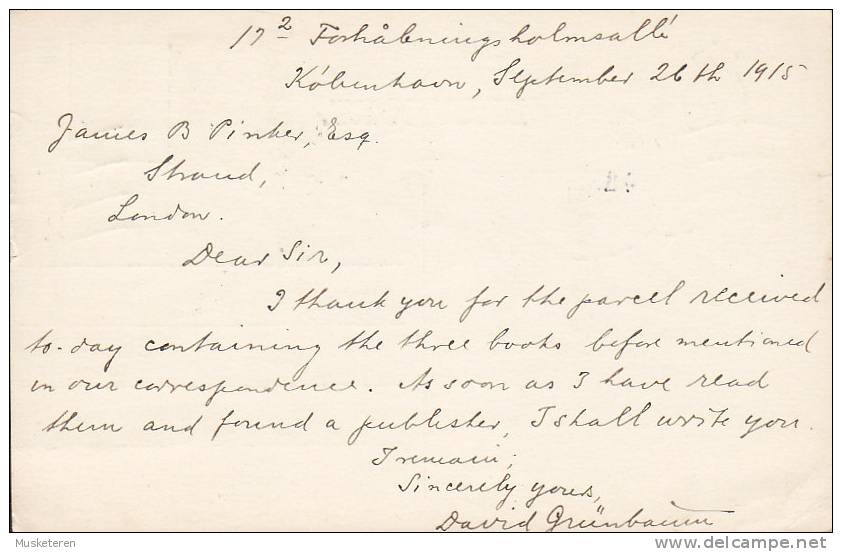 17² Forhåbningsholmsallé
København, September 26th 1915
James B Pinker, Esq.
Strand,
London.
Dear Sir,
I thank you for the parcel received
to-day containing the three books before mentioned
in our correspondence. As soon as I have read
them and found a publisher, I shall write you.
I remain;
Sincerely yours,
David Grünbaum
Musketeren
delcampe.net